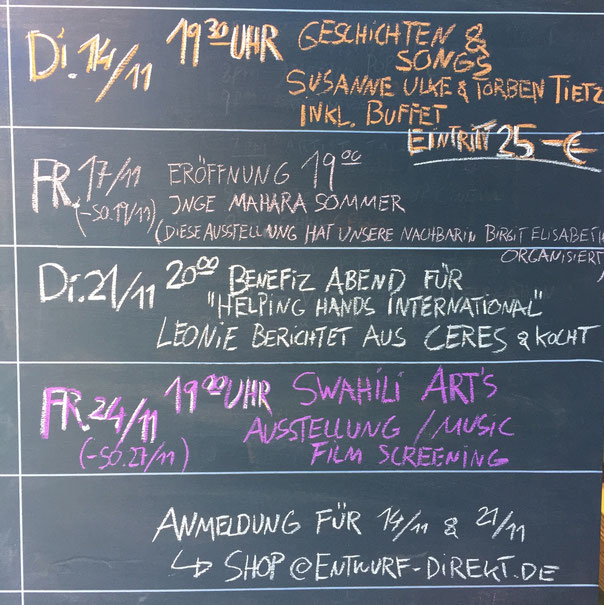 Di. 14/11 19 30 UHR GESCHICHTEN &
SONGS
SUSANNE ULKE & TORBEN TIETZ
INKL. BUFFET
EINTRITT 25-€
FR. 17/11 ERÖFFNUNG 19 00
(-SO.19/11) INGE MAHARA SOMMER
(DIESE AUSSTELLUNG HAT UNSERE NACHBARIN BIRGIT
ORGANISIERT
Di. 21/11 20 00 BENEFIZ ABEND FÜR
"HELPING HANDS INTERNATIONAL"
LEONIE BERICHTET AUS CERES & KOCHT
FR. 24/11 19 00 UHR SWAHILI ART'S
(-SO.27/11) AUSSTELLUNG / MUSIC
FILM SCREENING
ANMELDUNG FÜR 14/11 & 21/11
↳ SHOP@ENTWURF-DIREKT.DE